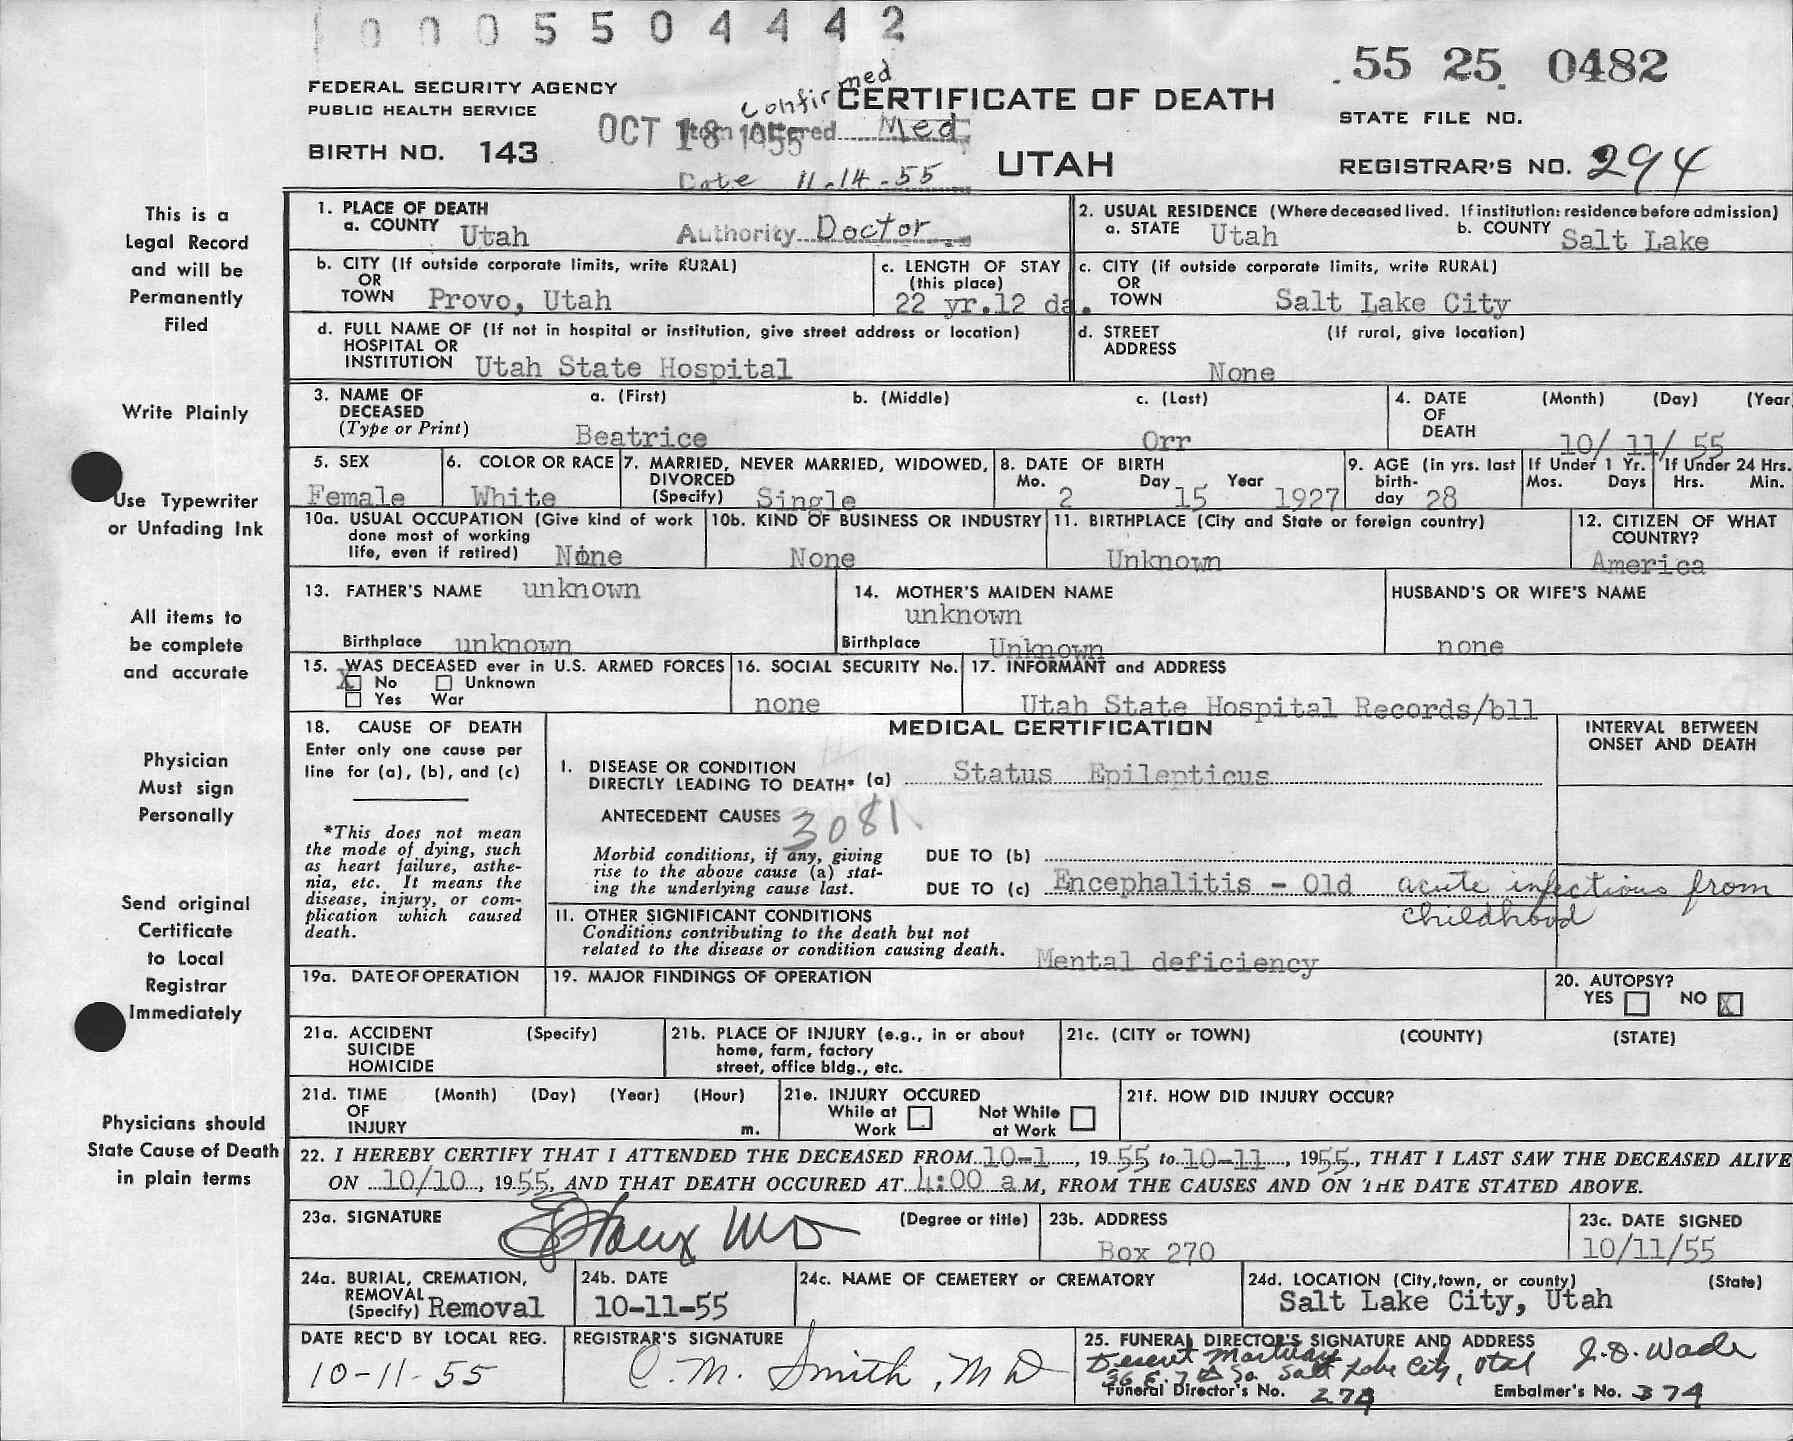 0005504442
55 25 0482
FEDERAL SECURITY AGENCY
PUBLIC HEALTH SERVICE
Confirmed
CERTIFICATE OF DEATH
STATE FILE NO.
OCT 18 1955
Item Altered Med.
BIRTH NO. 143
UTAH
REGISTRAR'S NO. 294
Date 11-14-55
This is a
Legal Record
and will be
Permanently
Filed
Write Plainly
Use Typewriter
or Unfading Ink
All items to
be complete
and accurate
Physician
Must sign
Personally
Send original
Certificate
to Local
Registrar
Immediately
Physicians should
State Cause of Death
in plain terms
1. PLACE OF DEATH
a. COUNTY Utah
Authority Doctor
2. USUAL RESIDENCE (Where deceased lived. If institution: residence before admission)
a. STATE Utah b. COUNTY Salt Lake
b. CITY (If outside corporate limits, write RURAL)
OR
TOWN Provo, Utah
c. LENGTH OF STAY
(this place)
22 yr.12 da.
c. CITY (if outside corporate limits, write RURAL)
OR
TOWN Salt Lake City
d. FULL NAME OF (If not in hospital or institution, give street address or location)
HOSPITAL OR
INSTITUTION Utah State Hospital
d. STREET (If rural, give location)
ADDRESS
None
3. NAME OF
DECEASED
(Type or Print)
a. (First) b. (Middle) c. (Last)
Beatrice Orr
4. DATE (Month) (Day) (Year
OF
DEATH 10/ 11/ 55
5. SEX
Female
6. COLOR OR RACE
White
7. MARRIED, NEVER MARRIED, WIDOWED,
DIVORCED
(Specify) Single
8. DATE OF BIRTH
Mo. 2 Day 15 Year 1927
9. AGE (in yrs. last
birth-
day 28
If Under 1 Yr.
Mos. Days
If Under 24 Hrs.
Hrs. Min.
10a. USUAL OCCUPATION (Give kind of work
done most of working
life, even if retired) None
10b. KIND OF BUSINESS OR INDUSTRY
None
11. BIRTHPLACE (City and State or foreign country)
Unknown
12. CITIZEN OF WHAT
COUNTRY?
America
13. FATHER'S NAME unknown
Birthplace unknown
14. MOTHER'S MAIDEN NAME
unknown
Birthplace Unknown
HUSBAND'S OR WIFE'S NAME
none
15. WAS DECEASED ever in U.S. ARMED FORCES
X No Unknown
Yes War
16. SOCIAL SECURITY No.
none
17. INFORMANT and ADDRESS
Utah State Hospital Records/bll
18. CAUSE OF DEATH
Enter only one cause per
line for (a), (b), and (c)
*This does not mean
the mode of dying, such
as heart failure, asthe-
nia, etc. It means the
disease, injury, or com-
plication which caused
death.
MEDICAL CERTIFICATION
INTERVAL BETWEEN
ONSET AND DEATH
I. DISEASE OR CONDITION
DIRECTLY LEADING TO DEATH* (a) Status Epilepticus
ANTECEDENT CAUSES 3081
Morbid conditions, if any, giving
rise to the above cause (a) stat-
ing the underlying cause last.
DUE TO (b)
DUE TO (c) Encephalitis - Old acute infectious from
childhood
II. OTHER SIGNIFICANT CONDITIONS
Conditions contributing to the death but not
related to the disease or condition causing death.
Mental deficiency
19a. DATE OF OPERATION
19. MAJOR FINDINGS OF OPERATION
20. AUTOPSY?
YES NO X
21a. ACCIDENT (Specify)
SUICIDE
HOMICIDE
21b. PLACE OF INJURY (e.g., in or about
home, farm, factory
street, office bldg., etc.
21c. (CITY or TOWN) (COUNTY) (STATE)
21d. TIME (Month) (Day) (Year) (Hour)
OF
INJURY m.
21e. INJURY OCCURED
While at Work Not While at Work
21f. HOW DID INJURY OCCUR?
22. I HEREBY CERTIFY THAT I ATTENDED THE DECEASED FROM 10-1, 1955 to 10-11, 1955, THAT I LAST SAW THE DECEASED ALIVE
ON 10/10, 1955, AND THAT DEATH OCCURED AT 4:00 a M, FROM THE CAUSES AND ON THE DATE STATED ABOVE.
23a. SIGNATURE MD (Degree or title)
23b. ADDRESS
Box 270
23c. DATE SIGNED
10/11/55
24a. BURIAL, CREMATION,
REMOVAL
(Specify) Removal
24b. DATE
10-11-55
24c. NAME OF CEMETERY or CREMATORY
24d. LOCATION (City,town, or county) (State)
Salt Lake City, Utah
DATE REC'D BY LOCAL REG.
10-11-55
REGISTRAR'S SIGNATURE
C. M. Smith, MD
25. FUNERAL DIRECTOR'S SIGNATURE AND ADDRESS J.D. Wade
Deseret Mortuary
36 E. 7th So. Salt Lake City, Utah
Funeral Director's No. 274 Embalmer's No. 374